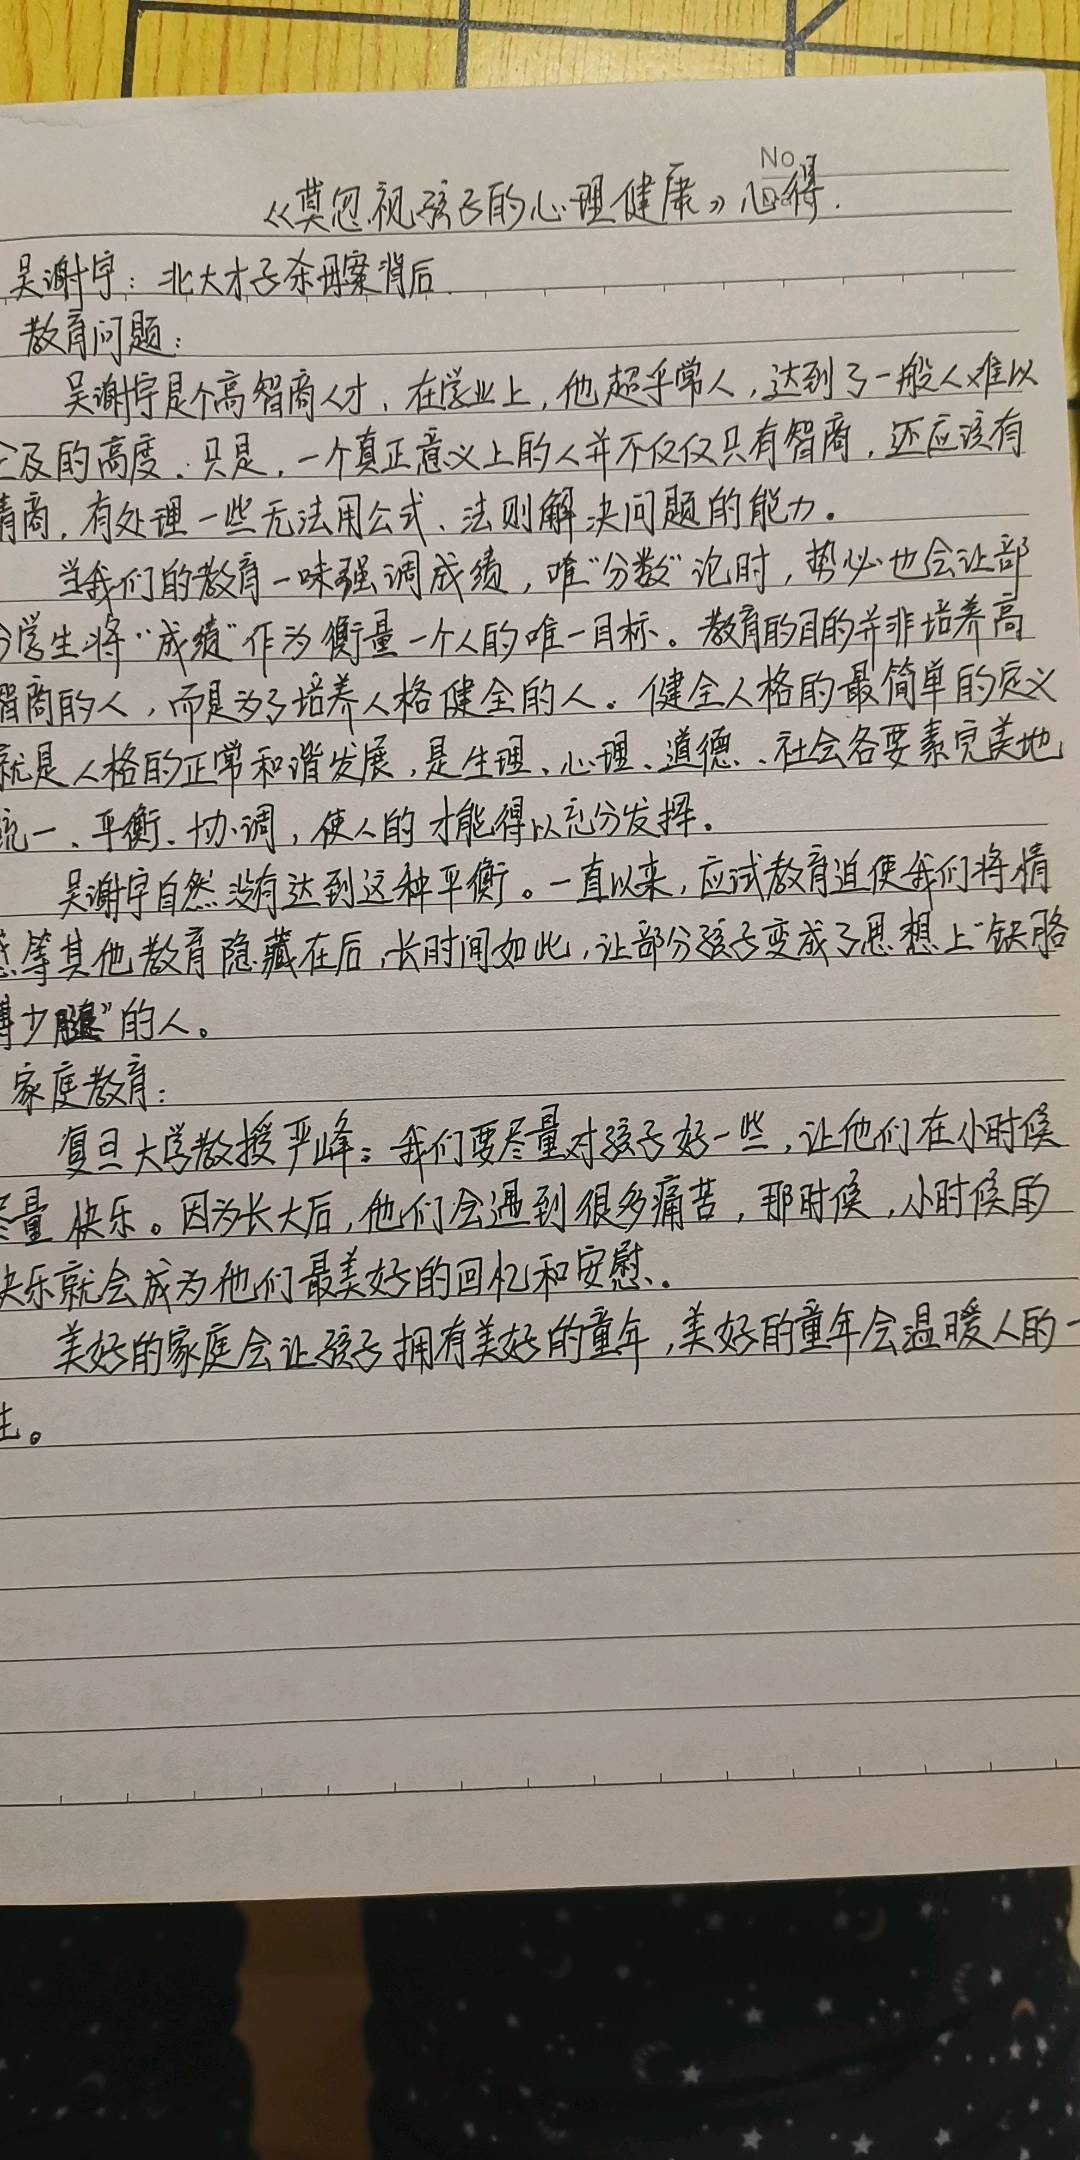 No.
《莫忽视孩子的心理健康》心得.
吴谢宇：北大才子杀母案背后.
教育问题：
吴谢宇是个高智商人才、在学业上，他超乎常人，达到了一般人难以
及的高度.只是，一个真正意义上的人并不仅仅只有智商，还应该有
情商，有处理一些无法用公式、法则解决问题的能力。
当我们的教育一味强调成绩，唯“分数”论时，势必也会让部
分学生将“成绩”作为衡量一个人的唯一目标。教育的目的并非培养高
智商的人，而是为了培养人格健全的人。健全人格的最简单的定义
就是人格的正常和谐发展，是生理、心理、道德、社会各要素完美地
统一、平衡、协调，使人的才能得以充分发挥。
吴谢宇自然没有达到这种平衡。一直以来，应试教育迫使我们将情
感等其他教育隐藏在后，长时间如此，让部分孩子变成了思想上“缺胳
膊少腿”的人。
家庭教育：
复旦大学教授严峰：我们要尽量对孩子好一些，让他们在小时候
尽量快乐。因为长大后，他们会遇到很多痛苦，那时候，小时候的
快乐就会成为他们最美好的回忆和安慰.。
美好的家庭会让孩子拥有美好的童年，美好的童年会温暖人的一
生。